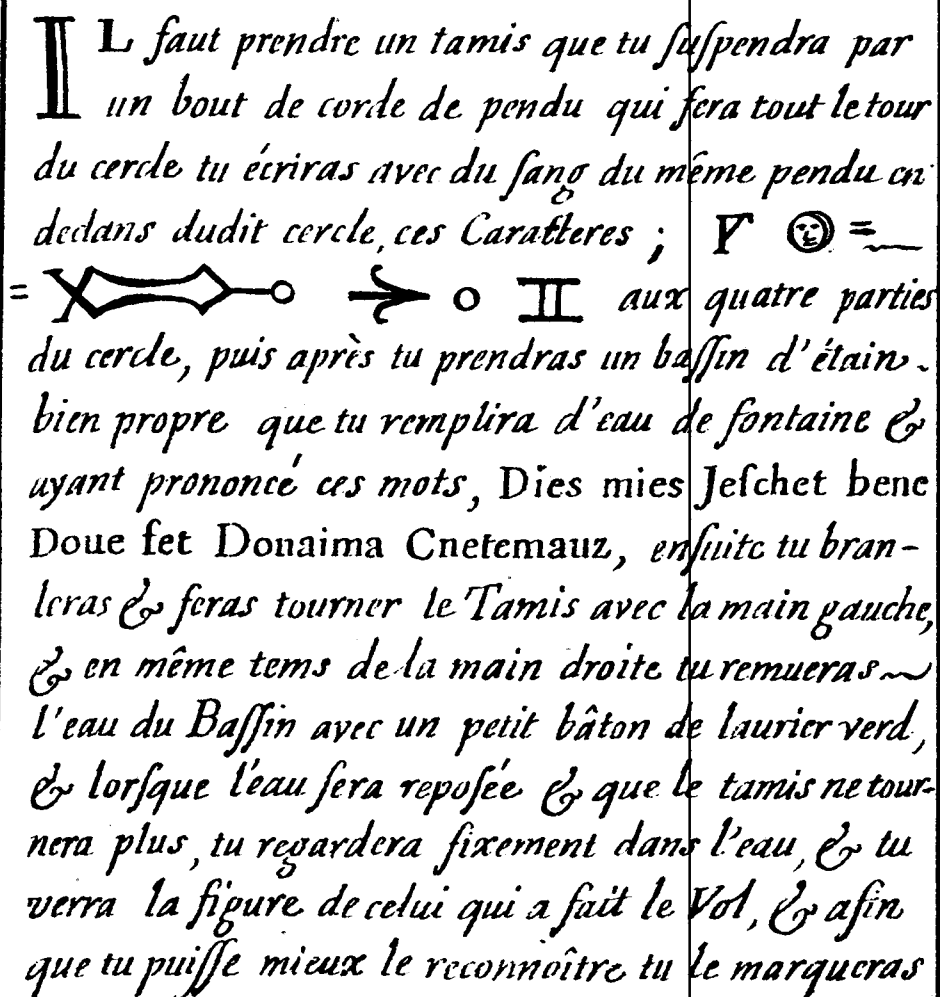 IL faut prendre un tamis que tu ſuſpendra par
un bout de corde de pendu qui ſera tout le tour
du cercle tu écriras avec du ſang du même pendu en
dedans dudit cercle, ces Caracteres ;
aux quatre parties
du cercle, puis après tu prendras un baſſin d'étain
bien propre que tu remplira d'eau de fontaine &
ayant prononcé ces mots, Dies mies Jeſchet bene
Doue fet Donaima Cnetemauz, enſuite tu bran-
leras & feras tourner le Tamis avec la main gauche,
& en même tems de la main droite tu remueras
l'eau du Baſſin avec un petit bâton de laurier verd,
& lorſque l'éau ſera repoſée & que le tamis ne tour-
nera plus, tu regardera fixement dans l'eau, & tu
verra la figure de celui qui a fait le Vol, & afin
que tu puiſſe mieux le reconnoître tu le marqueras